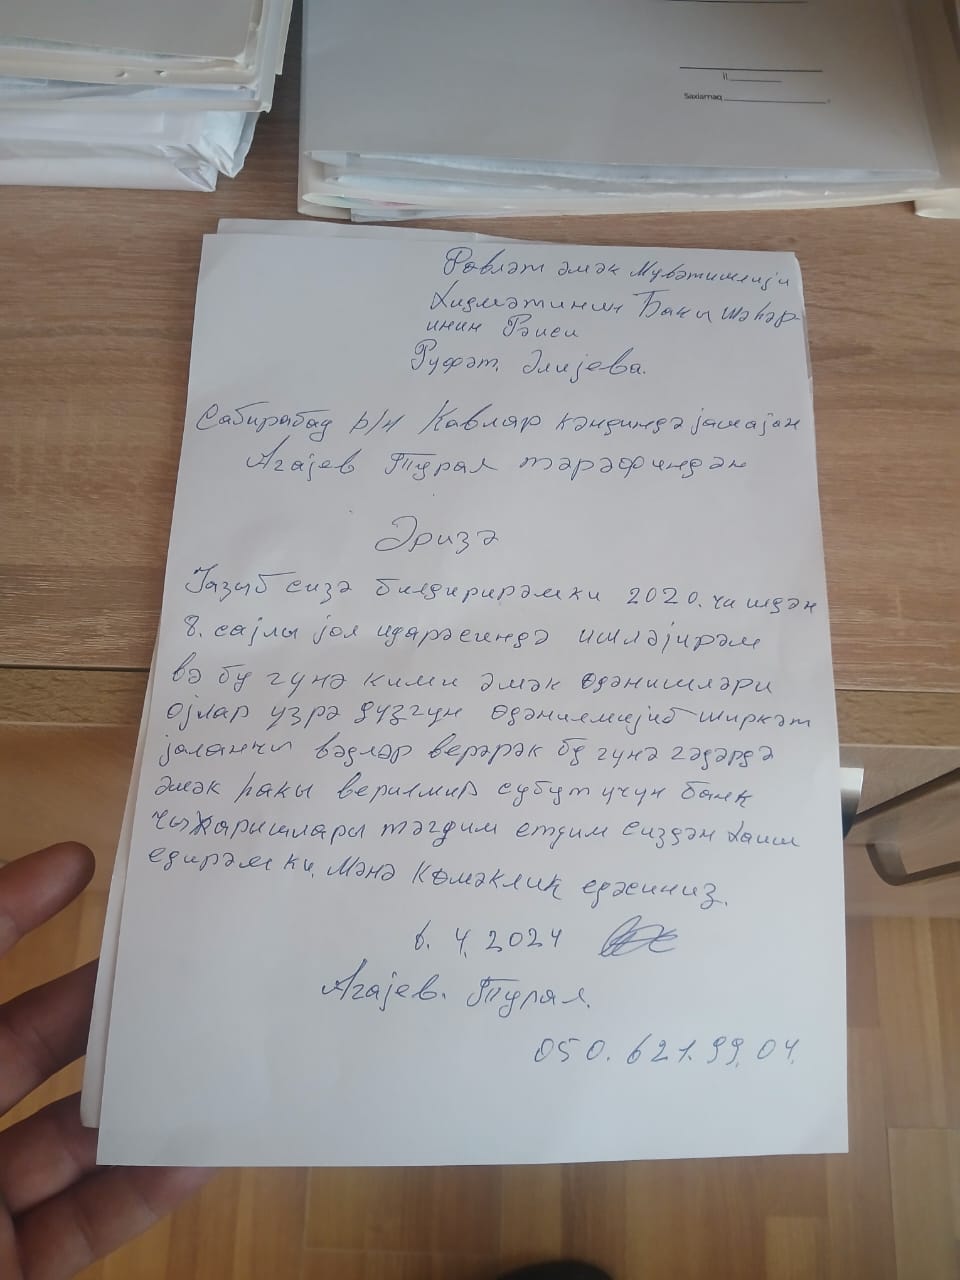 il
Saxlamaq
Довләт әмәк Мүфәтишлији
Хидмәтинин Бакы шәһәр
инин Рәиси
Руфәт. Әлијева.
Сабирабад р/н Кавлар кәндиндә јашајан
Агајев Турал тәрәфиндән
Әризә
Јазыб сизә билдирирәмки 2020. чи илдән
8. сајлы јол идарәсиндә ишләјирәм
вә бу гүнә кими әмәк өдәнишләри
ојлар узрә дузгун өдәнилмијиб ширкәт
јаланчы вәдләр верәрәк бу гүнә гәдәрдә
әмәк һакы верилмир субут учун банк
чыхаришлары тәгдим етдим сиздән хаиш
едирәм ки. Мәнә көмәклик едәсиниз.
6. 4. 2024
Агајев. Турал.
050. 621. 99. 04.